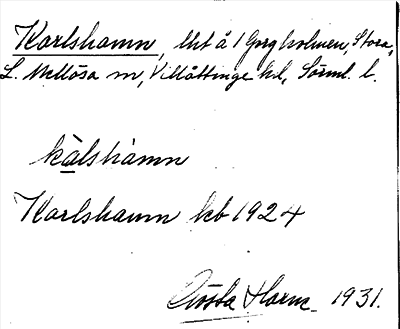 Karlshamn, lht å 1 Gorgholmen, Stora,
L. Mellösa sn, Villåttinge hd, Sörml. l.
kàlshàmn
Karlshamn kb 1924
Gösta Horne 1931.